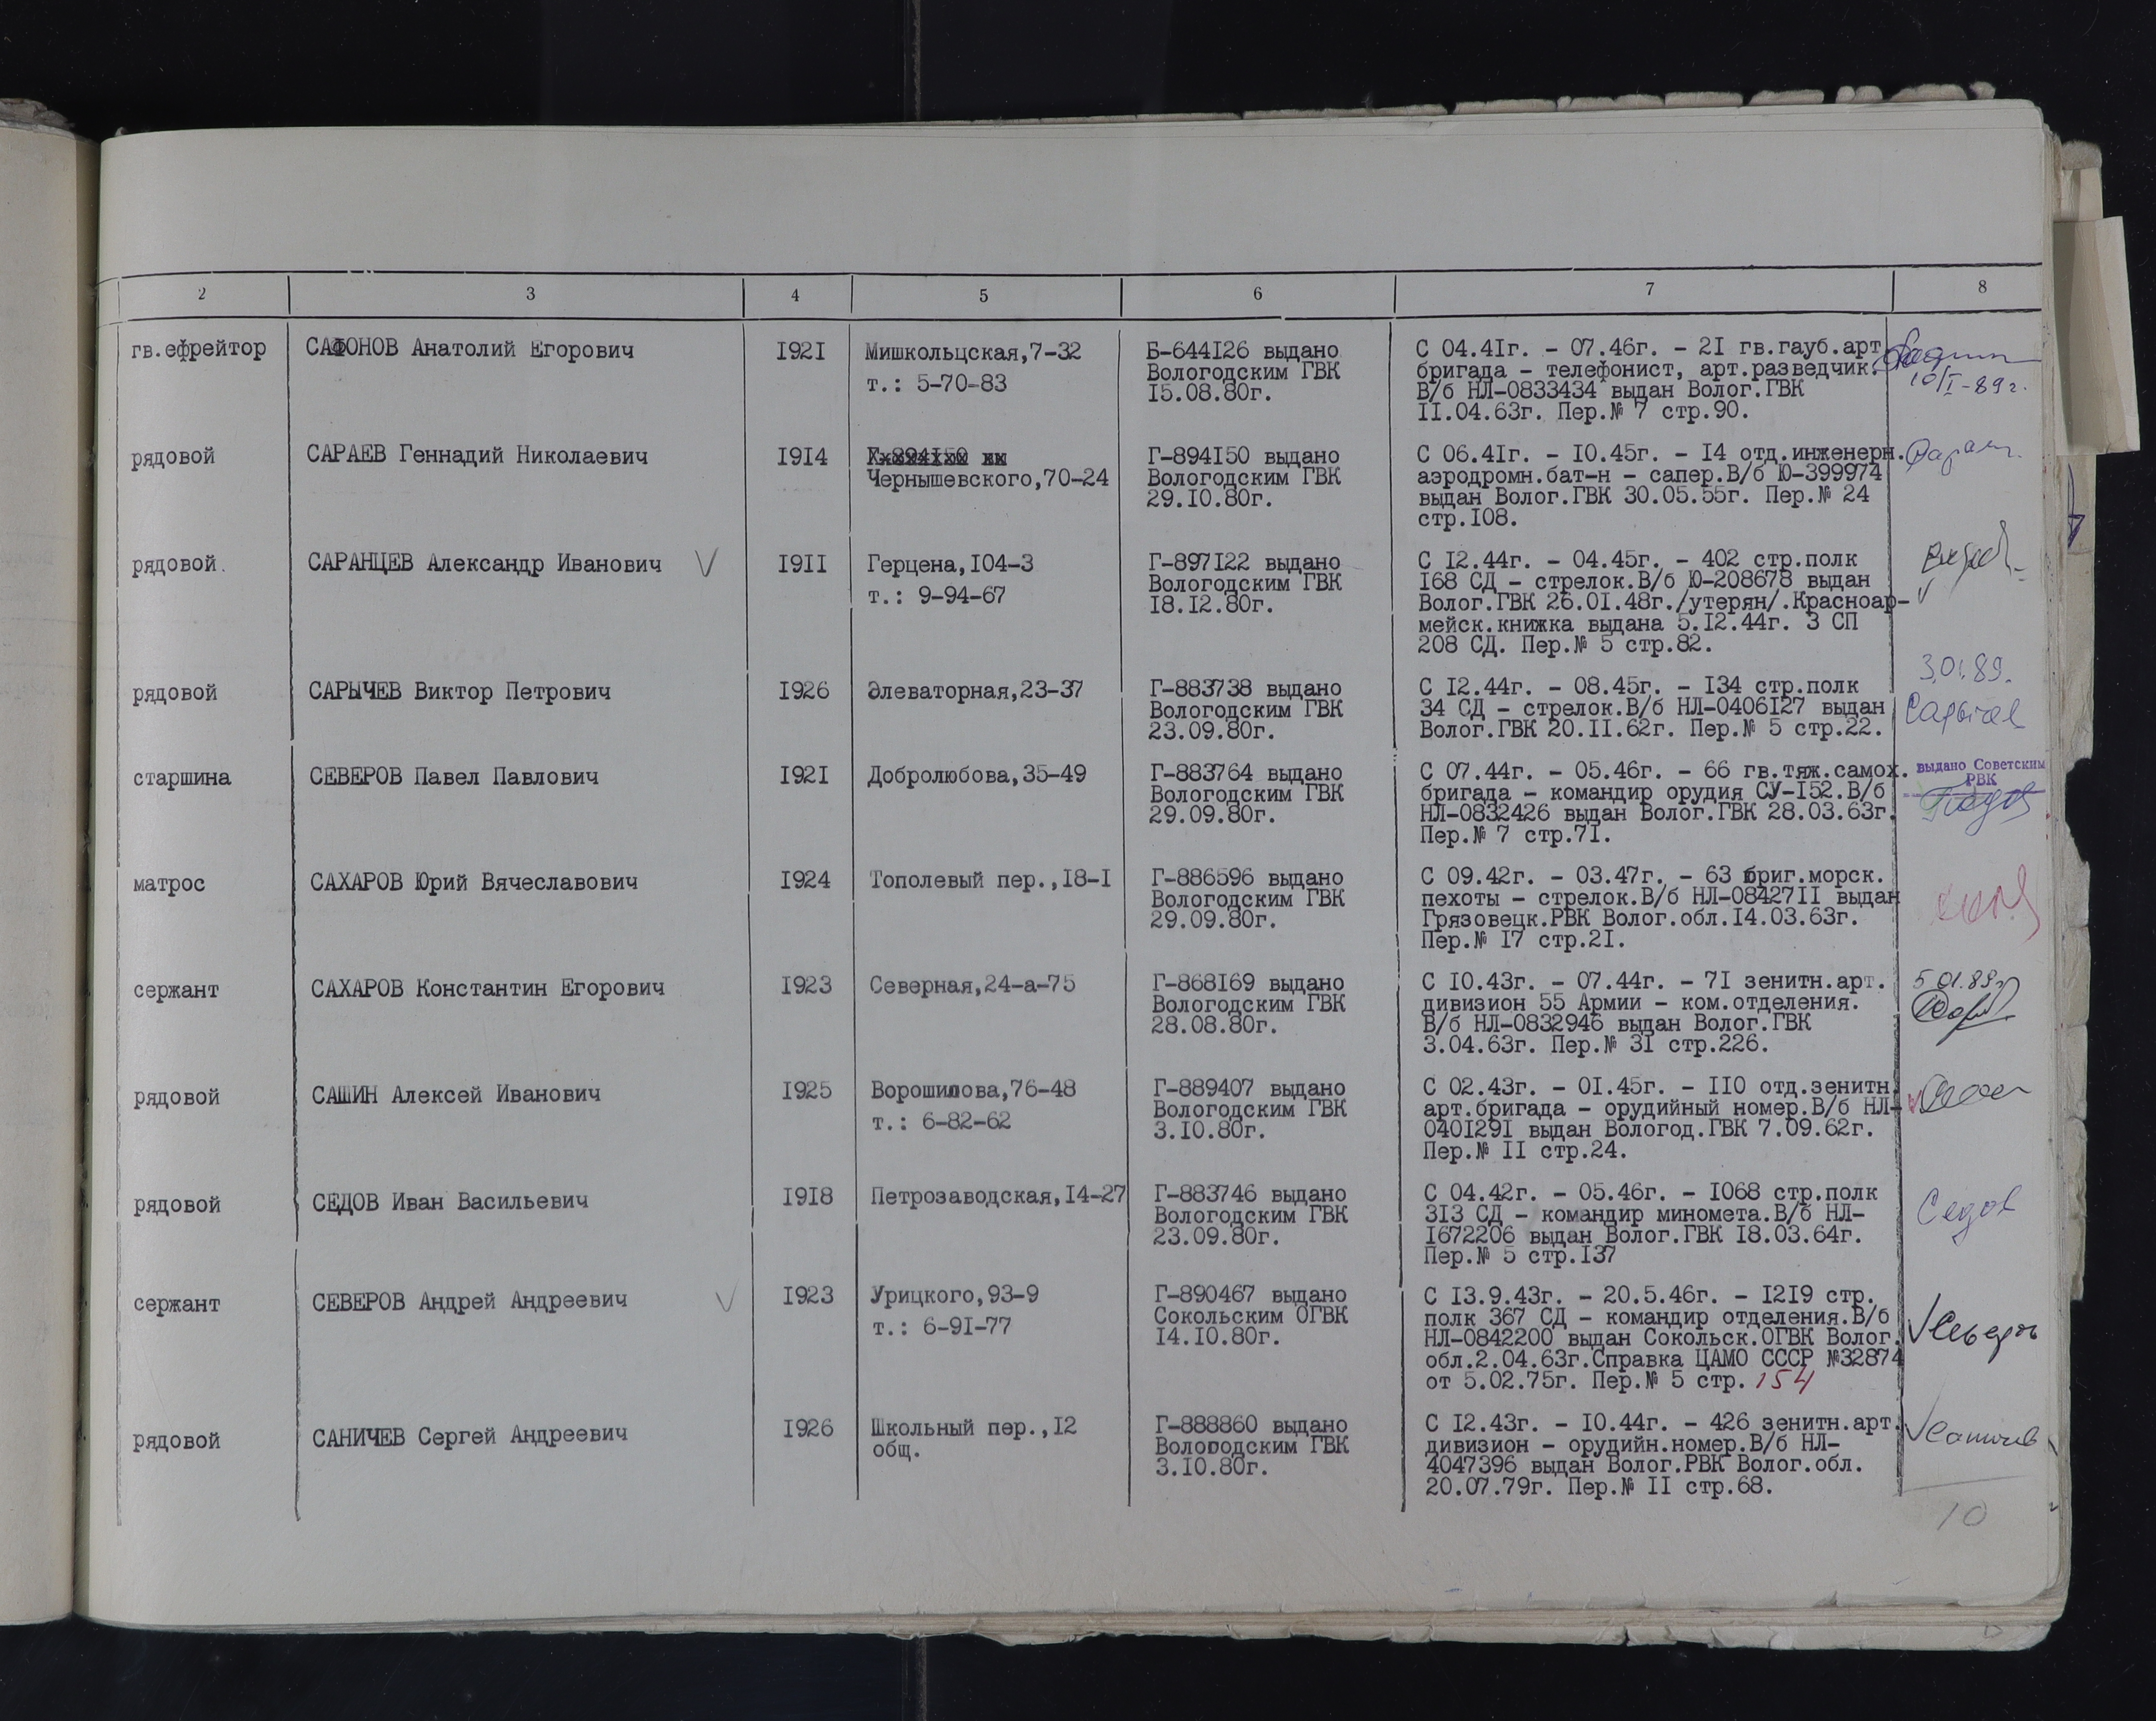 2 3 4 5 6 7 8
гв.ефрейтор
САФОНОВ Анатолий Егорович
1921
Мишкольцская,7-32
т.: 5-70-83
Б-644126 выдано
Вологодским ГВК
15.08.80г.
С 04.41г. - 07.46г. - 21 гв.гауб.арт
бригада - телефонист, арт.разведчик.
В/б НЛ-0833434 выдан Волог.ГВК
11.04.63г. Пер.№ 7 стр.90.
10/I-89г.
рядовой
САРАЕВ Геннадий Николаевич
1914
Чернышевского,70-24
Г-894150 выдано
Вологодским ГВК
29.10.80г.
С 06.41г. - 10.45г. - 14 отд.инженерн.
аэродромн.бат-н - сапер.В/б Ю-399974
выдан Волог.ГВК 30.05.55г. Пер.№ 24
стр.108.
рядовой.
САРАНЦЕВ Александр Иванович V
1911
Герцена,104-3
т.: 9-94-67
Г-897122 выдано
Вологодским ГВК
18.12.80г.
С 12.44г. - 04.45г. - 402 стр.полк
168 СД - стрелок.В/б Ю-208678 выдан
Волог.ГВК 26.01.48г./утерян/.Красноар-
мейск.книжка выдана 5.12.44г. 3 СП
208 СД. Пер.№ 5 стр.82.
рядовой
САРЫЧЕВ Виктор Петрович
1926
Элеваторная,23-37
Г-883738 выдано
Вологодским ГВК
23.09.80г.
С 12.44г. - 08.45г. - 134 стр.полк
34 СД - стрелок.В/б НЛ-0406127 выдан
Волог.ГВК 20.11.62г. Пер.№ 5 стр.22.
3.01.89.
Сарычев
старшина
СЕВЕРОВ Павел Павлович
1921
Добролюбова,35-49
Г-883764 выдано
Вологодским ГВК
29.09.80г.
С 07.44г. - 05.46г. - 66 гв.тяж.самох.
бригада - командир орудия СУ-152.В/б
НЛ-0832426 выдан Волог.ГВК 28.03.63г.
Пер.№ 7 стр.71.
выдано Советским
РВК
матрос
САХАРОВ Юрий Вячеславович
1924
Тополевый пер.,18-1
Г-886596 выдано
Вологодским ГВК
29.09.80г.
С 09.42г. - 03.47г. - 63 бриг.морск.
пехоты - стрелок.В/б НЛ-0842711 выдан
Грязовецк.РВК Волог.обл.14.03.63г.
Пер.№ 17 стр.21.
сержант
САХАРОВ Константин Егорович
1923
Северная,24-а-75
Г-868169 выдано
Вологодским ГВК
28.08.80г.
С 10.43г. - 07.44г. - 71 зенитн.арт.
дивизион 55 Армии - ком.отделения.
В/б НЛ-0832946 выдан Волог.ГВК
3.04.63г. Пер.№ 31 стр.226.
5.01.89г
рядовой
САШИН Алексей Иванович
1925
Ворошилова,76-48
т.: 6-82-62
Г-889407 выдано
Вологодским ГВК
3.10.80г.
С 02.43г. - 01.45г. - 110 отд.зенитн.
арт.бригада - орудийный номер.В/б НЛ-
0401291 выдан Вологод.ГВК 7.09.62г.
Пер.№ 11 стр.24.
рядовой
СЕДОВ Иван Васильевич
1918
Петрозаводская,14-27
Г-883746 выдано
Вологодским ГВК
23.09.80г.
С 04.42г. - 05.46г. - 1068 стр.полк
313 СД - командир миномета.В/б НЛ-
1672206 выдан Волог.ГВК 18.03.64г.
Пер.№ 5 стр.137
Седов
сержант
СЕВЕРОВ Андрей Андреевич V
1923
Урицкого,93-9
т.: 6-91-77
Г-890467 выдано
Сокольским ОГВК
14.10.80г.
С 13.9.43г. - 20.5.46г. - 1219 стр.
полк 367 СД - командир отделения.В/б
НЛ-0842200 выдан Сокольск.ОГВК Волог.
обл.2.04.63г.Справка ЦАМО СССР №32874
от 5.02.75г. Пер.№ 5 стр. 154
рядовой
САНИЧЕВ Сергей Андреевич
1926
Школьный пер.,12
общ.
Г-888860 выдано
Вологодским ГВК
3.10.80г.
С 12.43г. - 10.44г. - 426 зенитн.арт.
дивизион - орудийн.номер.В/б НЛ-
4047396 выдан Волог.РВК Волог.обл.
20.07.79г. Пер.№ 11 стр.68.
10